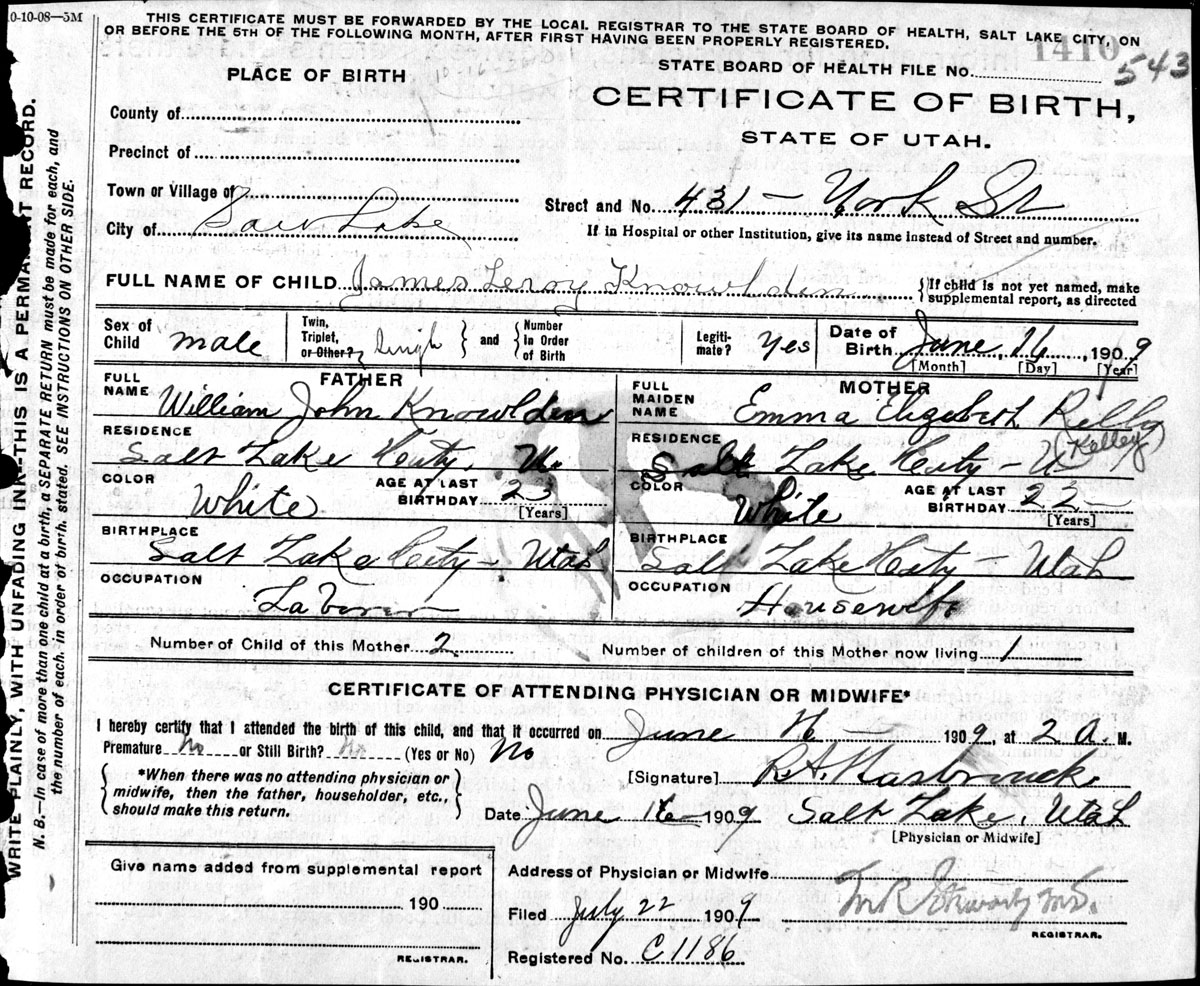 10-10-08—5M
THIS CERTIFICATE MUST BE FORWARDED BY THE LOCAL REGISTRAR TO THE STATE BOARD OF HEALTH, SALT LAKE CITY, ON
OR BEFORE THE 5TH OF THE FOLLOWING MONTH, AFTER FIRST HAVING BEEN PROPERLY REGISTERED.
1410
STATE BOARD OF HEALTH FILE No. 543
PLACE OF BIRTH
CERTIFICATE OF BIRTH,
STATE OF UTAH.
County of
Precinct of
Town or Village of
Street and No. 431 — York St
City of Salt Lake
If in Hospital or other Institution, give its name instead of Street and number.
FULL NAME OF CHILD James Leroy Knowlden
{If child is not yet named, make
supplemental report, as directed
Sex of Child male
Twin, Triplet, or Other? Single } and { Number In Order of Birth
Legitimate? Yes
Date of Birth June, 16, 1909
[Month] [Day] [Year]
FATHER
FULL NAME William John Knowlden
RESIDENCE
Salt Lake City. U.
COLOR White
AGE AT LAST BIRTHDAY 23
[Years]
BIRTHPLACE
Salt Lake City — Utah
OCCUPATION
Laborer
MOTHER
FULL MAIDEN NAME Emma Elizabeth Kelly
(Kelley)
RESIDENCE
Salt Lake City — U
COLOR White
AGE AT LAST BIRTHDAY 22
[Years]
BIRTHPLACE
Salt Lake City — Utah
OCCUPATION
Housewife
Number of Child of this Mother 2
Number of children of this Mother now living 1
CERTIFICATE OF ATTENDING PHYSICIAN OR MIDWIFE*
I hereby certify that I attended the birth of this child, and that it occurred on June 16 — 1909, at 2 A. M.
Premature No or Still Birth? No (Yes or No) No
{ *When there was no attending physician or
midwife, then the father, householder, etc.,
should make this return. }
[Signature] R.A. Hasbrouck
Date June 16 1909 Salt Lake, Utah
[Physician or Midwife]
Give name added from supplemental report
190
REGISTRAR.
Address of Physician or Midwife
Filed July 22 1909
REGISTRAR.
Registered No. C1186
WRITE PLAINLY, WITH UNFADING INK—THIS IS A PERMANENT RECORD.
N. B.—In case of more than one child at a birth, a SEPARATE RETURN must be made for each, and
the number of each, in order of birth, stated. SEE INSTRUCTIONS ON OTHER SIDE.